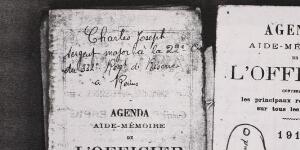 Charles Joseph
sergent major à la 22e
du 332e Régt de Réserve
à Reims
AGENDA
AIDE-MÉMOIRE
DE
L'OFFICIER
AGENDA
AIDE-MÉMOIRE
DE
L'OFFICI
les principaux re
sur tous les
191